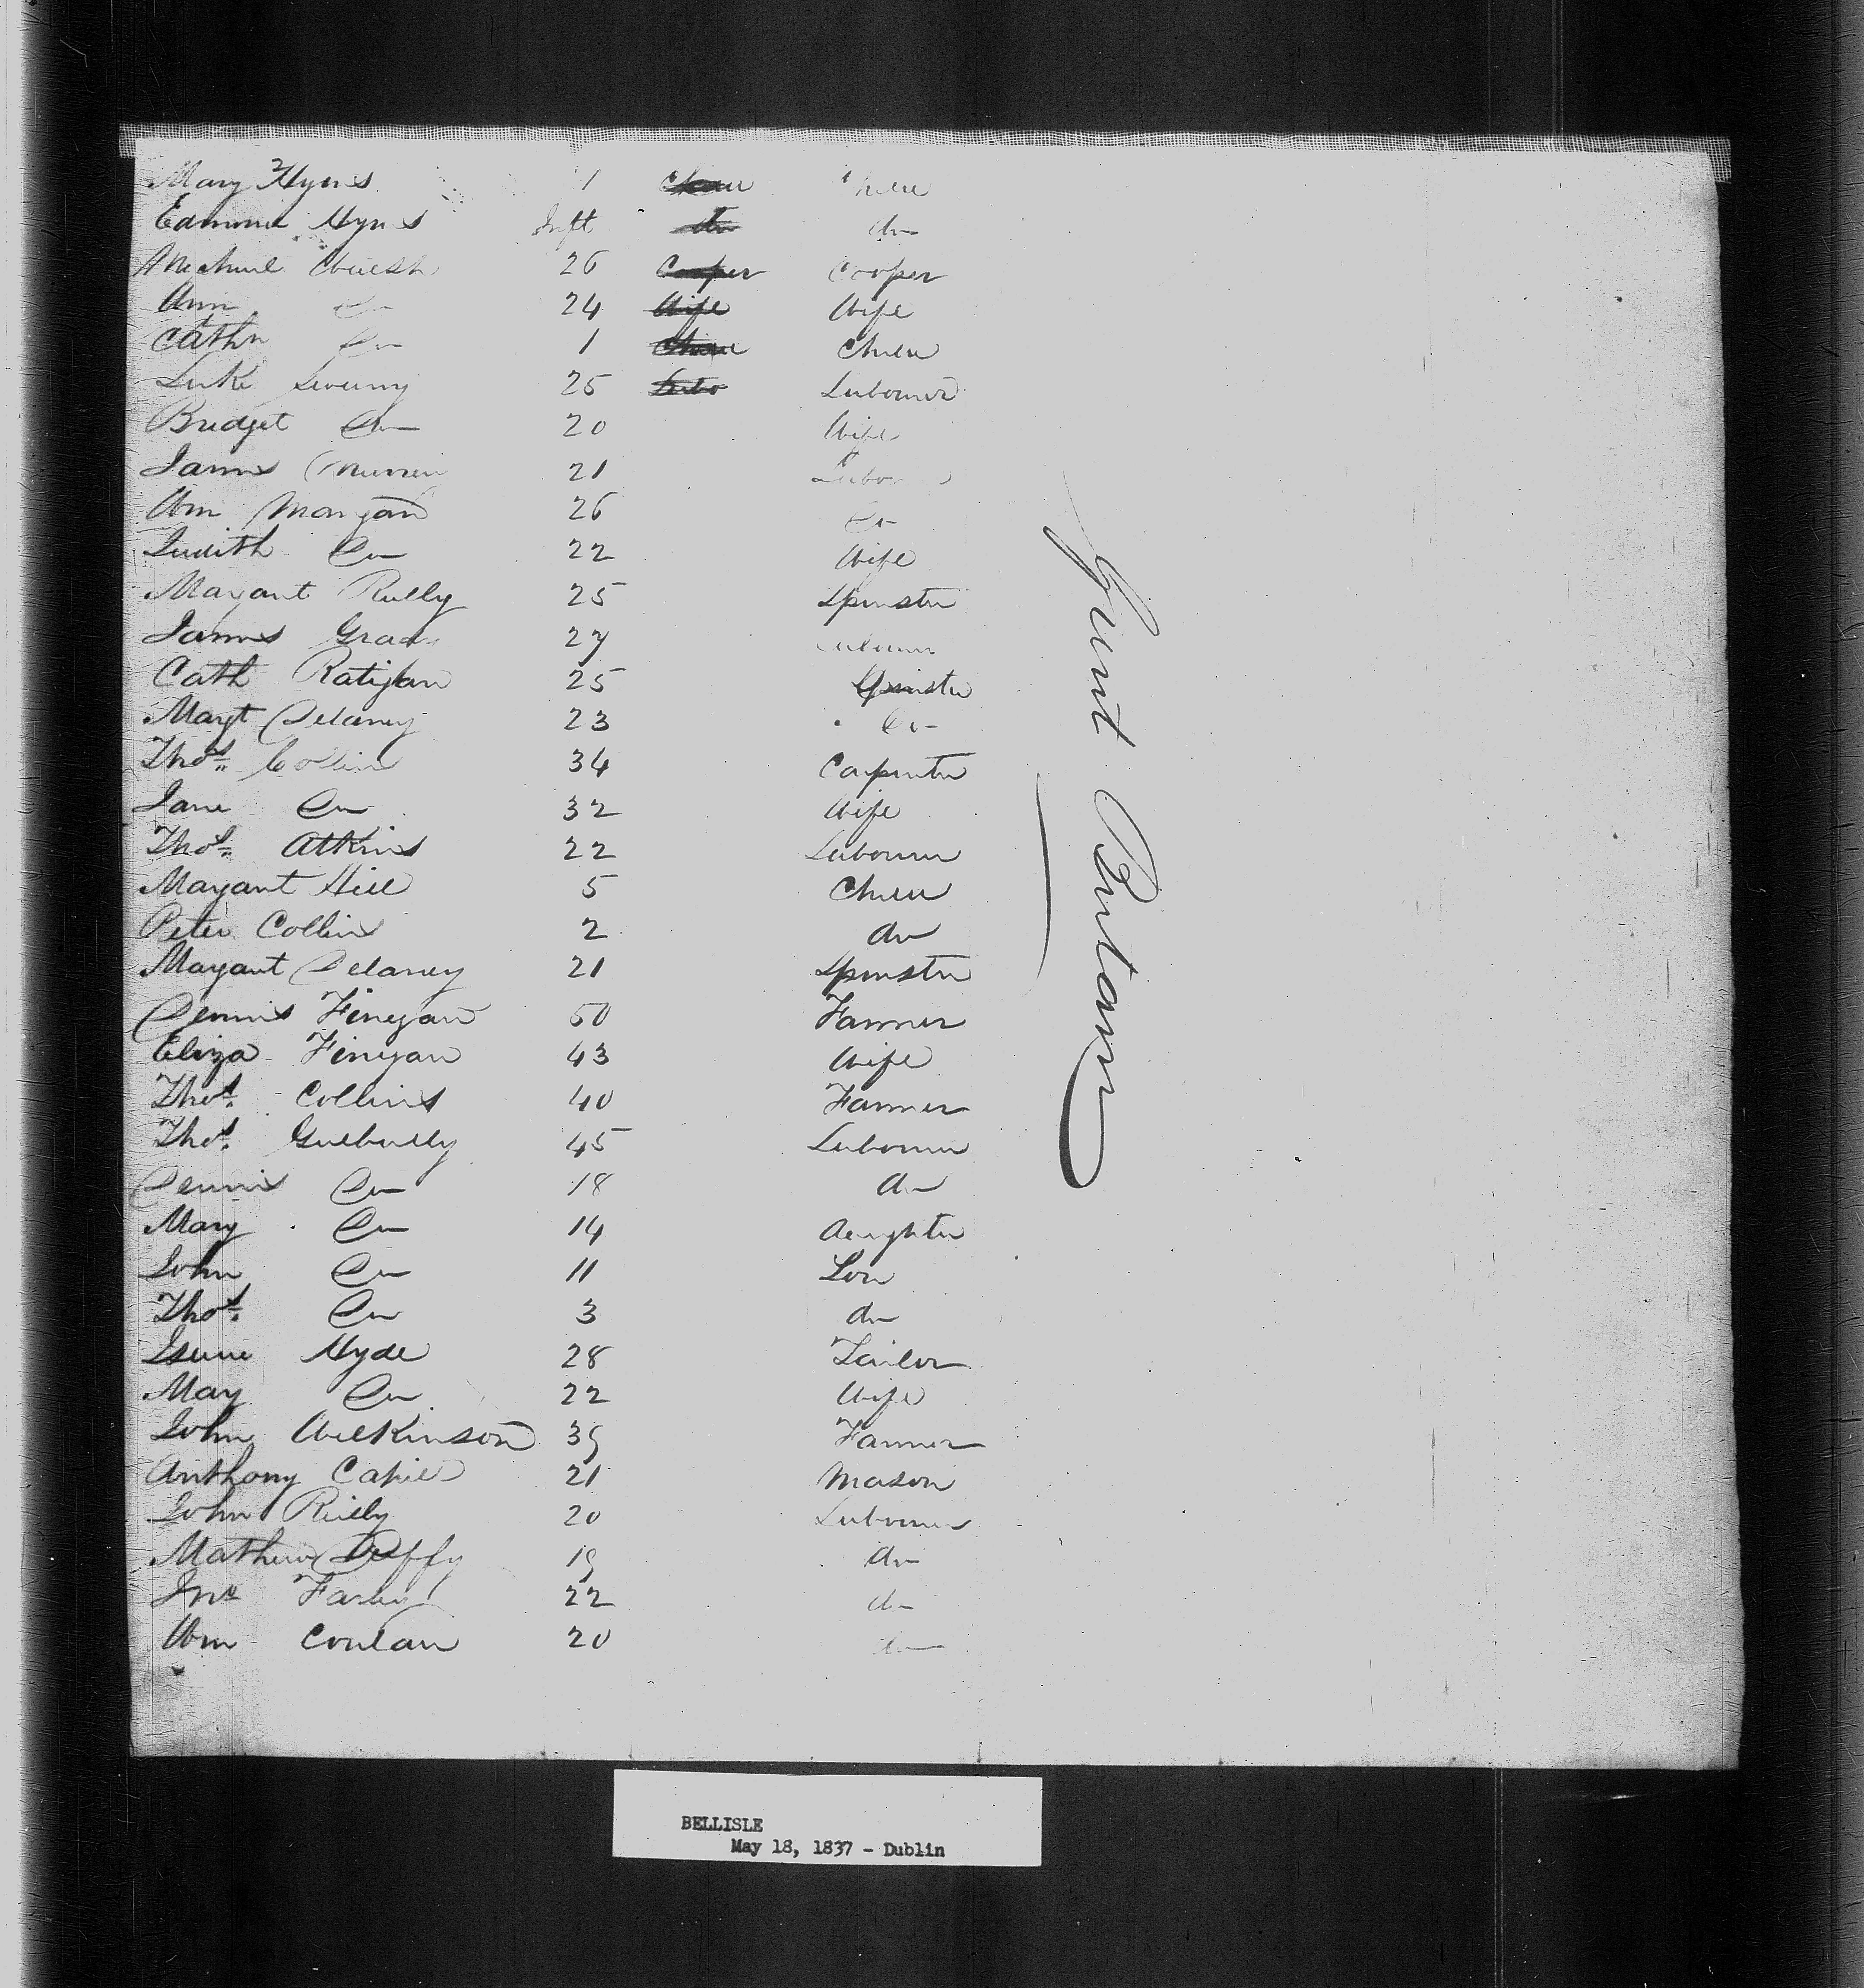 Mary Hyns 1 Child Child
Edmund Hyns Inft do do
Michael Walsh 26 Cooper Cooper
Ann Do 24 Wife Wife
Cathn Do 1 Child Child
Luke 25 Labo Labourer
Bridget Do 20 Wife
James 21 Labourer
Wm Morgan 26 Do
Judith Do 22 Wife
Margaret Reilly 25 Spinster
James Grady 27 Labourer
Cath Ratigan 25 Spinster
Margt Delaney 23 Do
Thos. Collins 34 Carpenter
Jane Do 32 Wife
Thos. Atkins 22 Labourer
Margaret Hill 5 Child
Peter Collins 2 do
Margaret Delaney 21 Spinster
Dennis Finegan 50 Farmer
Eliza Finegan 43 Wife
Thos. Collins 40 Farmer
Thos. 45 Labourer
Dennis Do 18 do
Mary Do 14 daughter
John Do 11 Son
Thos. Do 3 do
Hyde 28 Tailor
May Do 22 Wife
John Wilkinson 39 Farmer
Anthony Cahill 21 Mason
John Reilly 20 Labourer
Mathew Duffy 19 do
Jno 22 do
Wm Conlan 20 do
Great Britain
BELLISLE
May 18, 1837 - Dublin